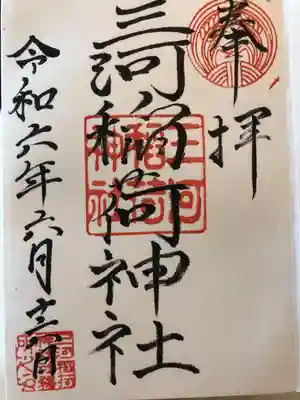 奉拝
三河稲荷神社
三河
稲荷
神社
令和六年六月 日